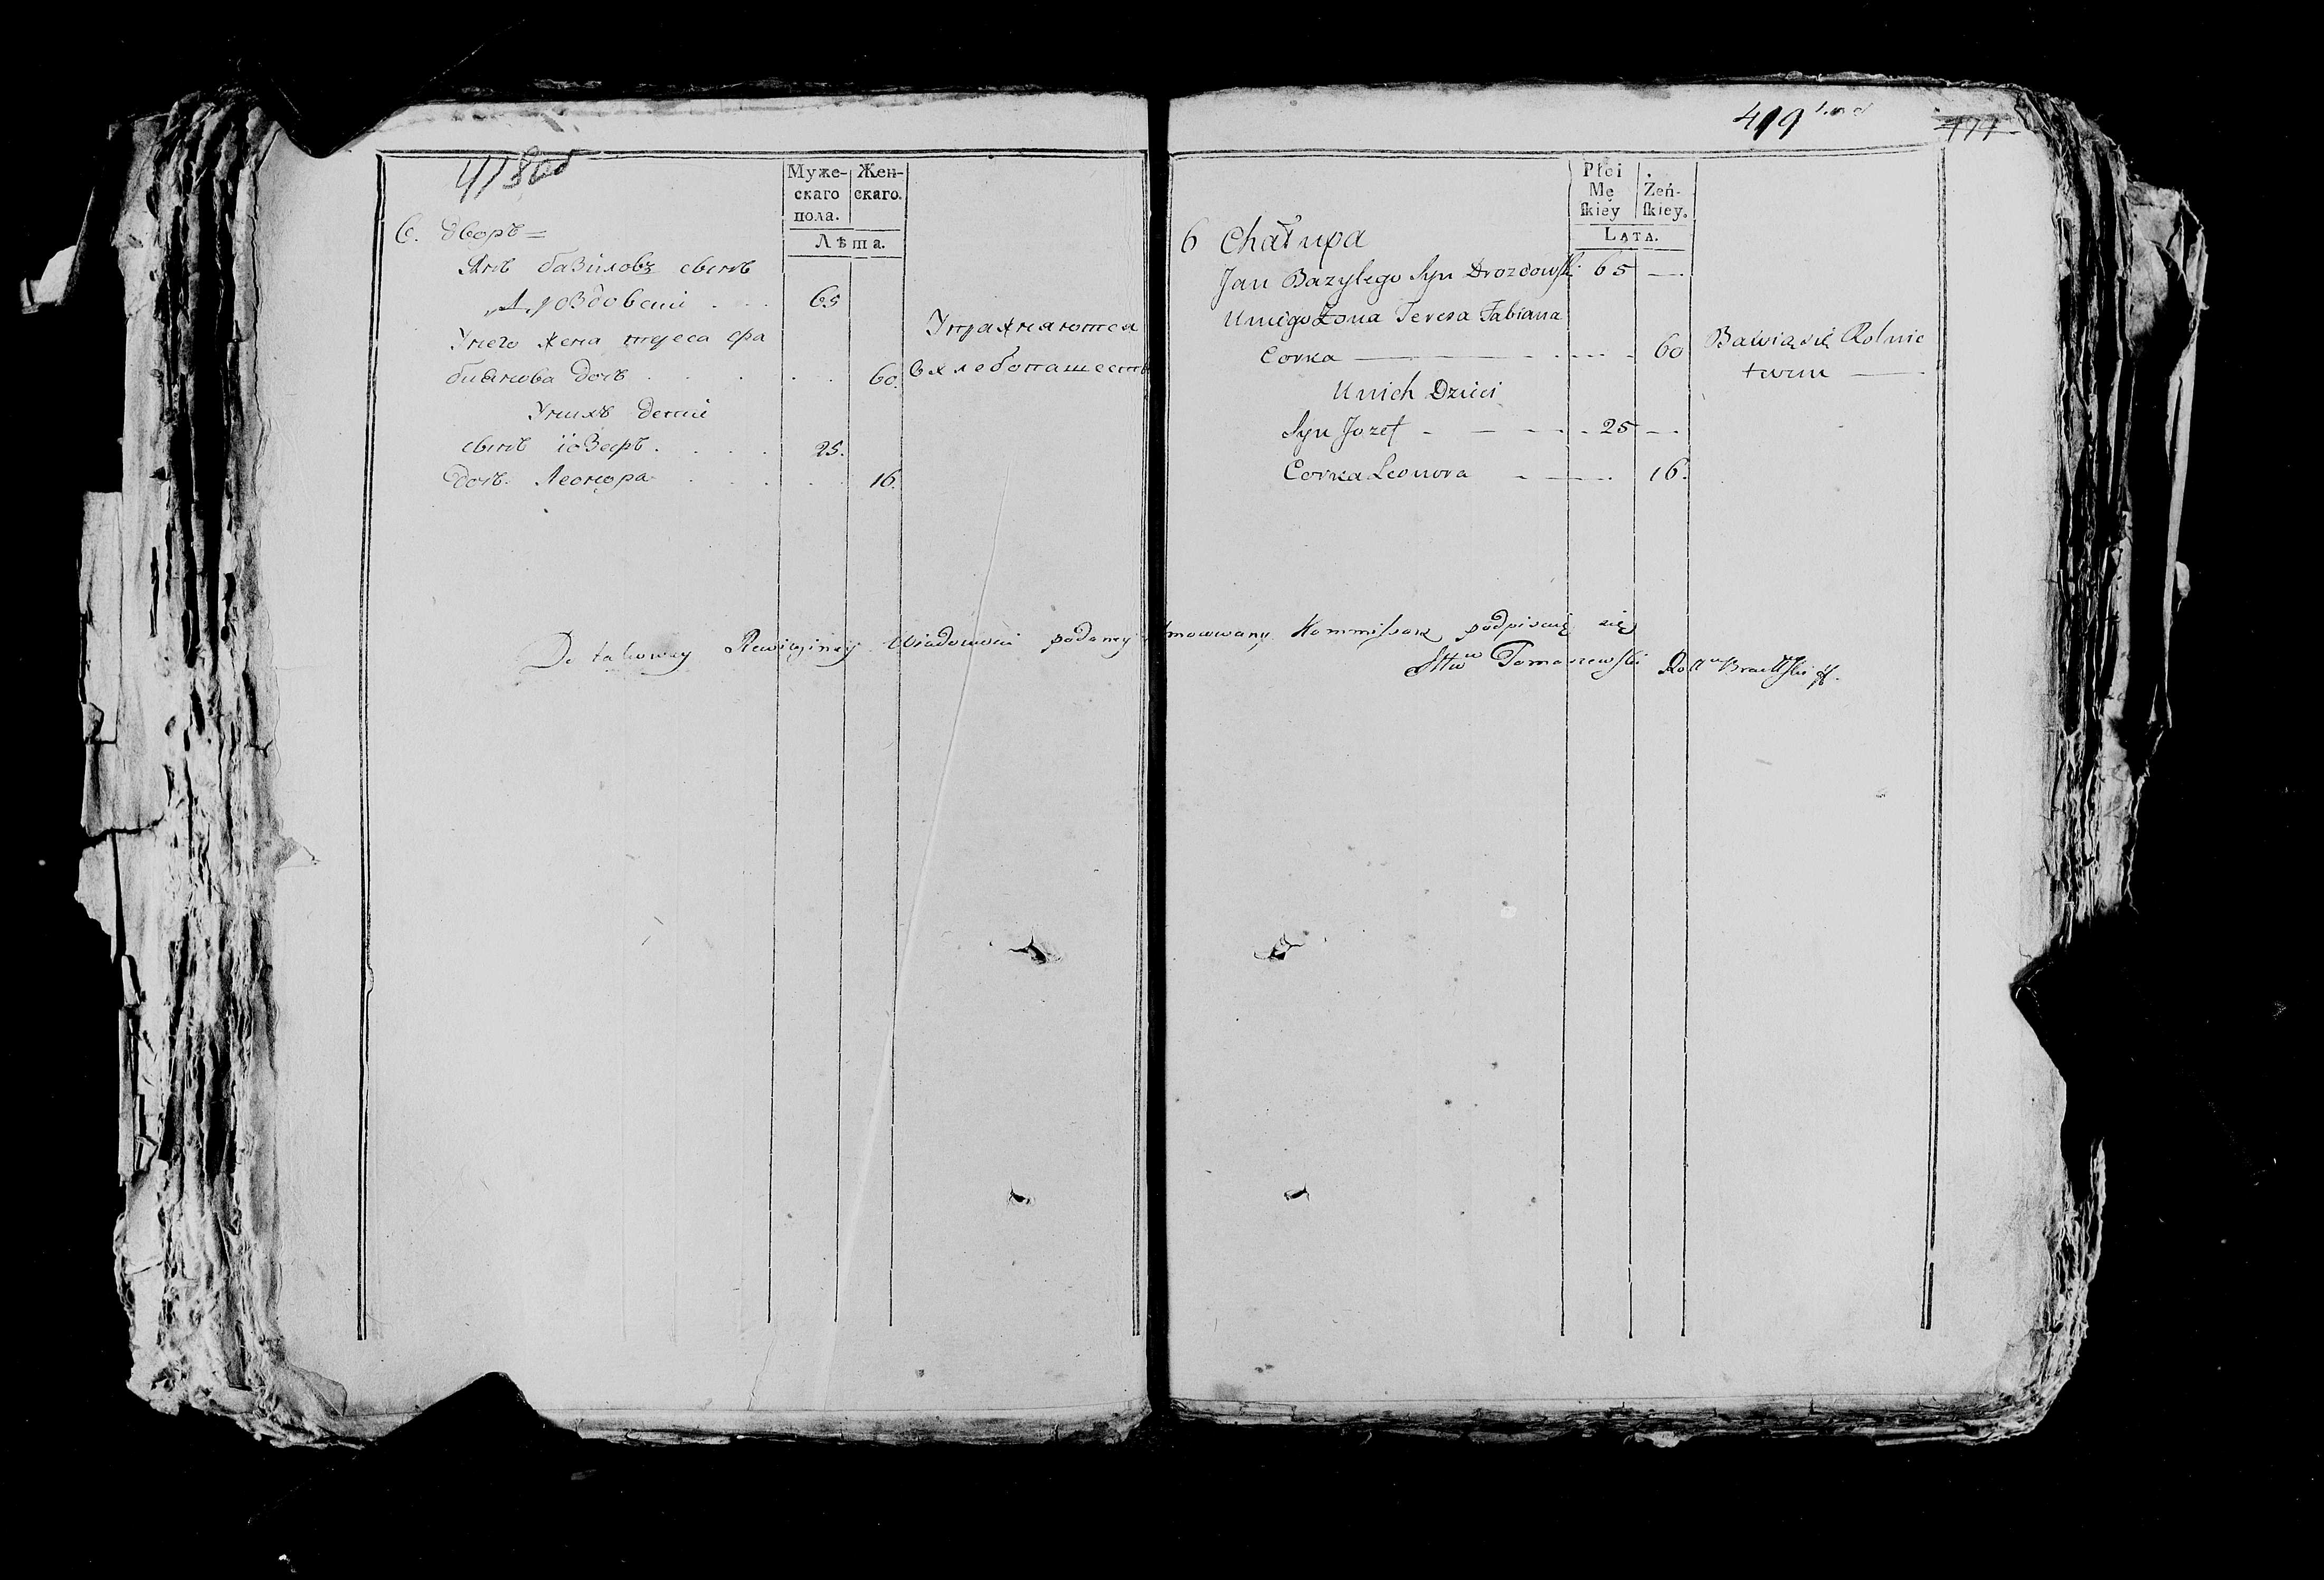 418
Муже-
скаго
пола.
Жен-
скаго.
Лѣта.
6. Дворъ =
Янъ базиловъ сынъ
Дроздовскій . . . 65
Унего жена тереса фа
биянова дочь . . . . . 60.
Упражняются
вхлебопашестве
Унихъ дети
сынъ іозефъ . . . . 25.
дочь Леонора . . . . . 16.
419
Płci
Mę
ſkiey
Żeń-
ſkiey.
LATA.
6 Chałupa
Jan Bazylego Syn Drozdowski 65 —
Uniego Żona Teresa Fabiana
Corka — 60
Bawią się Rolnic
twem —
Unich Dzieci
Syn Jozef - - - 25 -
Corka Leonora - — 16.
Do takowey Rewizyiney Wiadomosci podaney Kommissarz podpisuię się
Tomaszewski